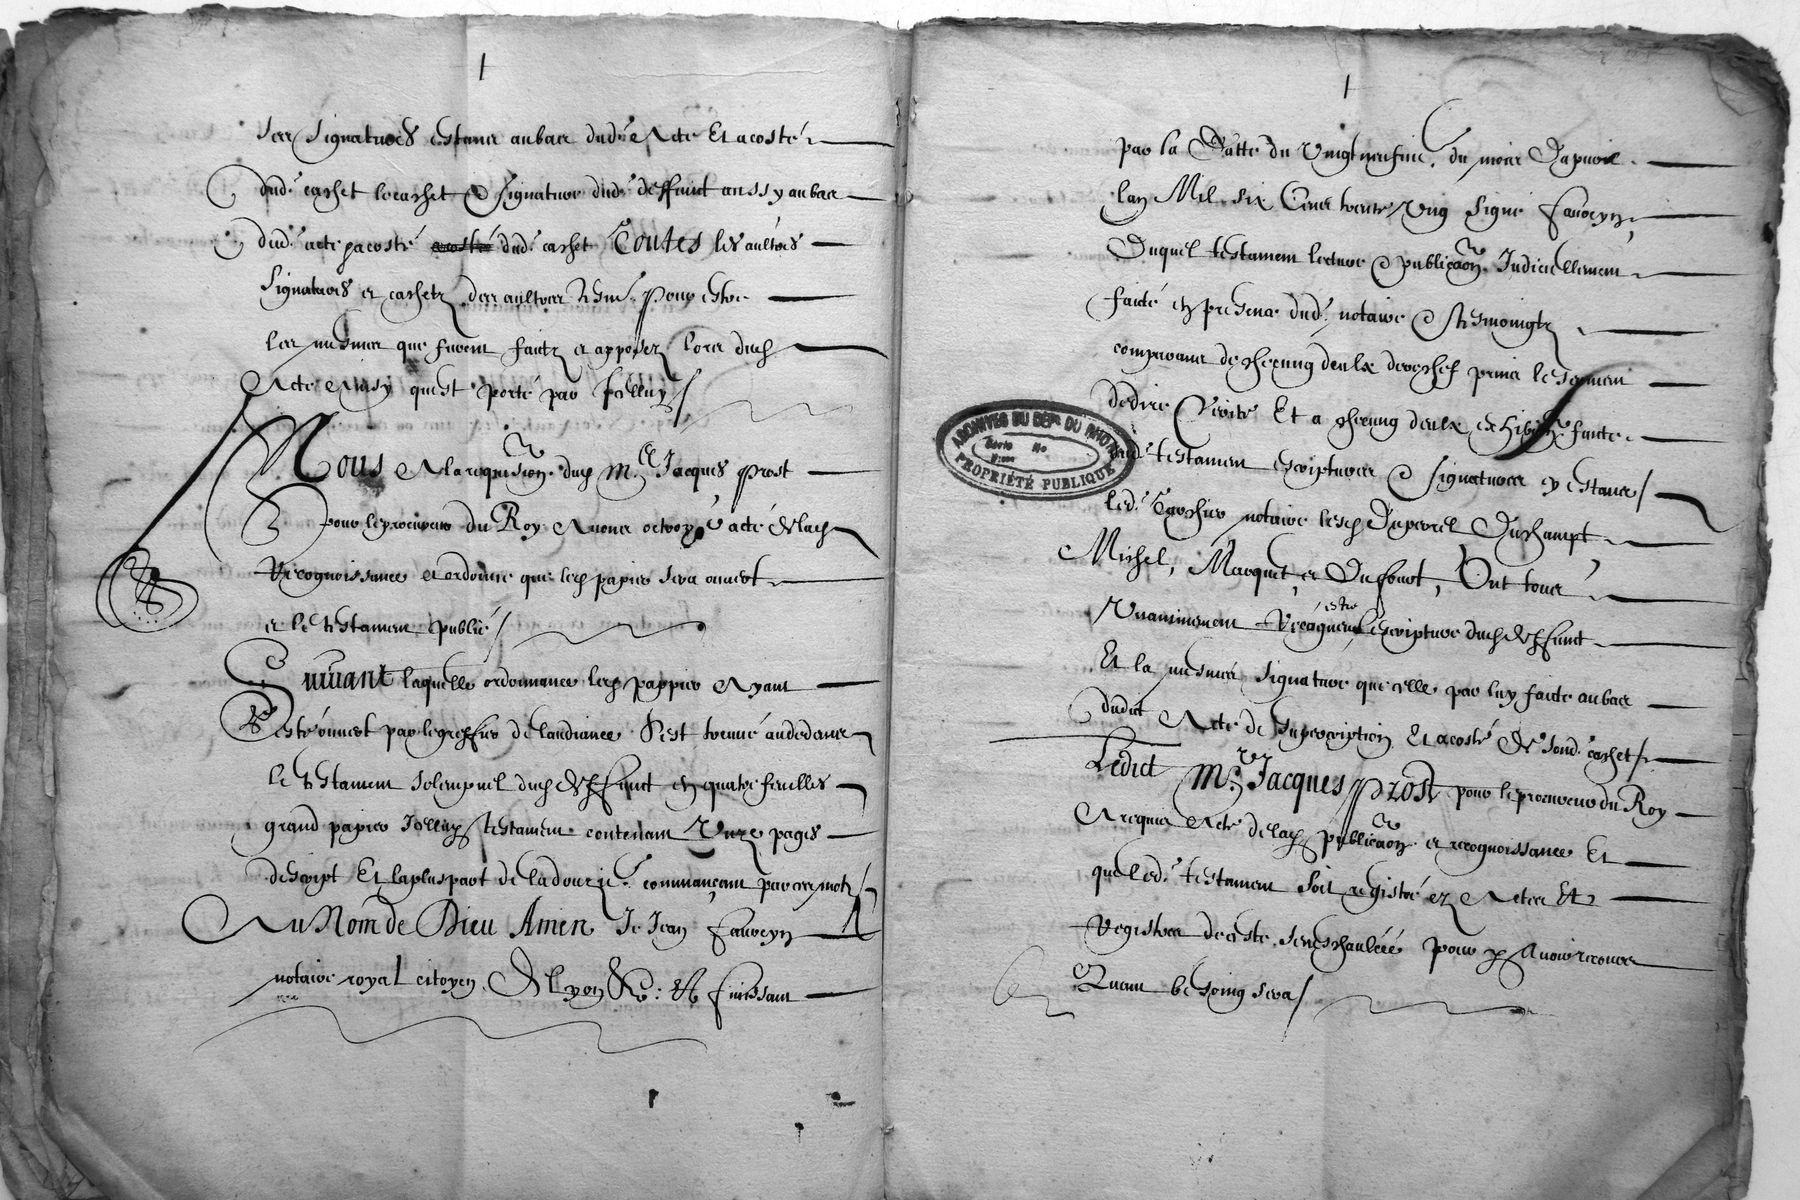 ses signatures estans au bas dud. Acte Et a costé
dud. cachet le cachet & signature dud. deffunt aussy au bas
dud. acte & a costé dud. cachet Toutes les aultres
signatures et cachetz des aultres tesm. pour estre
les mesmes que furent faictz et apposez lors dud.
Acte Ainsy quest porté par Icelluy /
Nous A la requisition dud. Me Jacques Prost
pour le procureur du Roy Avons octroyé acte de lad.
Recognoissance et ordonné que led. papier sera ouvert
et le testament publié /
Suivant laquelle ordonnance led. pappier Ayant
esté ouvert par le greffier de laudiance S'est trouvé au dedans
le testament solempnel dud. deffunct en quatre feuilles
grand papier Icelluy testament contenant Unze pages
descript Et la pluspart de la douzie. commançant par ces motz /
Au Nom de Dieu Amen Je Jean Faureyn
notaire royal citoyen de Lyon &c: Et finissant
par la Datte du Vingtneufvie. du mois Dapvril
lan Mil six Cens trente Ung Signé Faureyn
Duquel testament lecture & publicaon Judiciellement
faicte en presence dud. notaire & tesmoingtz
comparans de chacung deulx derechef prins le serment
de dire Verité Et a chacung deulx exhibition faicte
dud. testament escriptures & signatures y estans /
led. notaire lesd. Duperrel Duchampt
Michel, Marquet et Dufouot, Ont tous
Unanimement Recogneu estre lescripture dud. deffunct
Et la mesmes signature que celle par luy faicte au bas
dudict Acte de Superscription Et a costé de sond. cachet /
Ledict Me. Jacques Prost pour le procureur du Roy
A requis Acte de lad. publicaon et recognoissance Et
que led. testament soit registré ez Actes Et
Registres de ceste seneschaulcée pour y Avoir recours
Quant besoing sera /
ARCHIVES DU DEPt DU RHONE
Série No
PROPRIÉTÉ PUBLIQUE